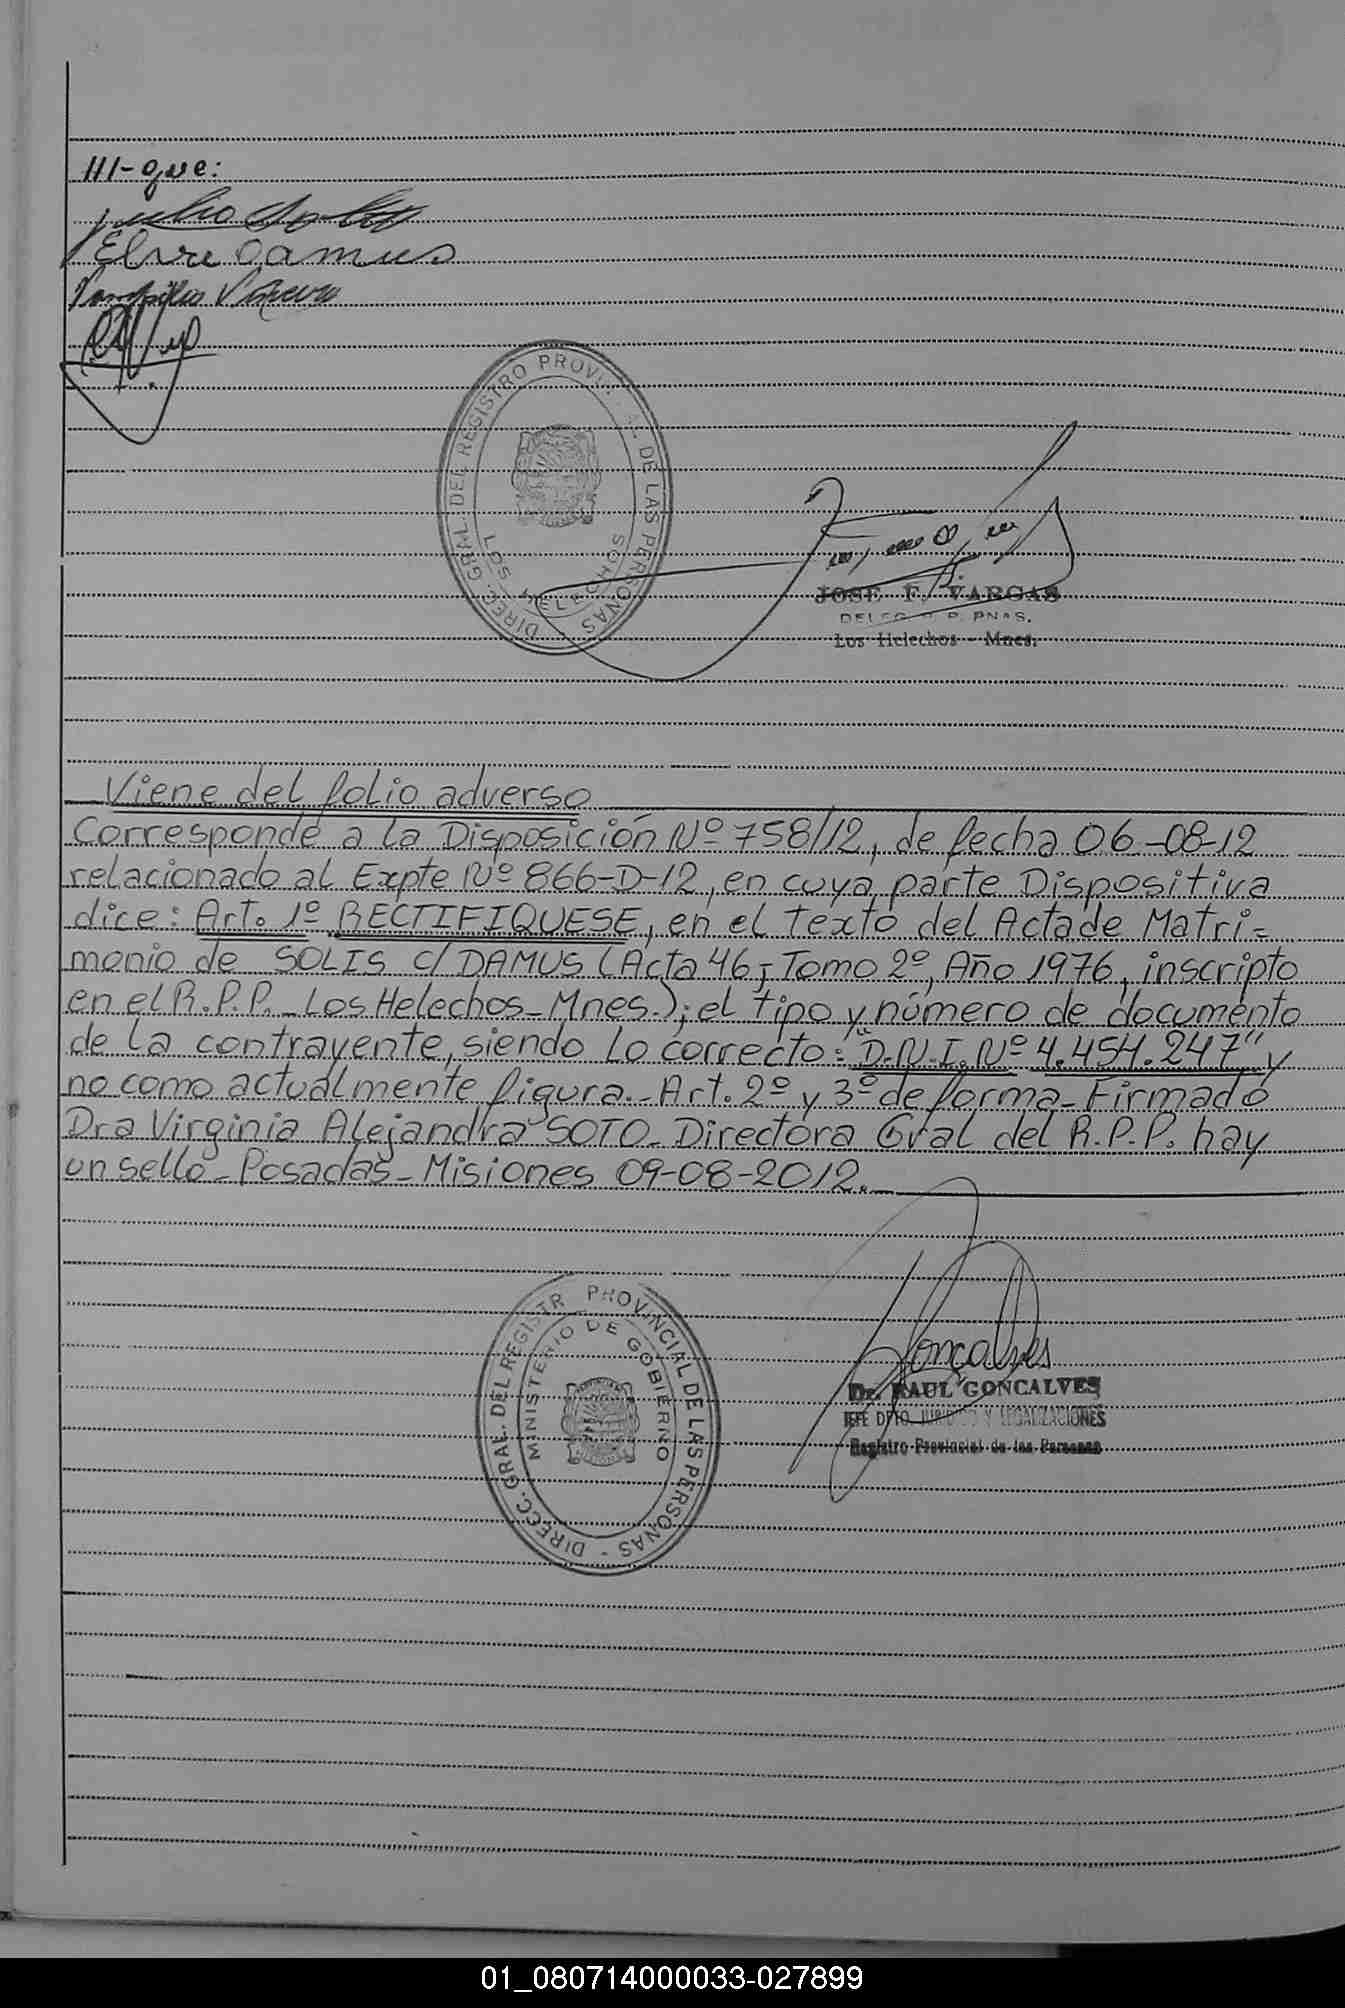 III-que:
Julio Solis
Elvira Damus
DIREC. GRAL. DEL REGISTRO PROVIN AL DE LAS PERSONAS
LOS HELECHOS
JOSE F. VARGAS
DELEG. R. P. PNAS.
Los Helechos - Mnes.
Viene del folio adverso
Corresponde a la Disposición Nº 758/12, de fecha 06-08-12
relacionado al Expte Nº 866-D-12, en cuya parte Dispositiva
dice: Art. 1º RECTIFIQUESE, en el texto del Acta de Matri=
monio de SOLIS c/ DAMUS (Acta 46, Tomo 2º, Año 1976, inscripto
en el R.P.P. - Los Helechos - Mnes.); el tipo y número de documento
de la contrayente, siendo lo correcto: "D.N.I. Nº 4.454.247" y
no como actualmente figura.- Art. 2º y 3º de forma - Firmado
Dra Virginia Alejandra SOTO - Directora Gral del R.P.P. hay
un sello - Posadas - Misiones 09-08-2012.-
DIRECC. GRAL. DEL REGISTR PROVINCIAL DE LAS PERSONAS -
MINISTERIO DE GOBIERNO
Gonçalves
Dr. RAUL GONCALVES
JEFE DPTO. JURIDICO Y LEGALIZACIONES
Registro Provincial de las Personas
01_080714000033-027899